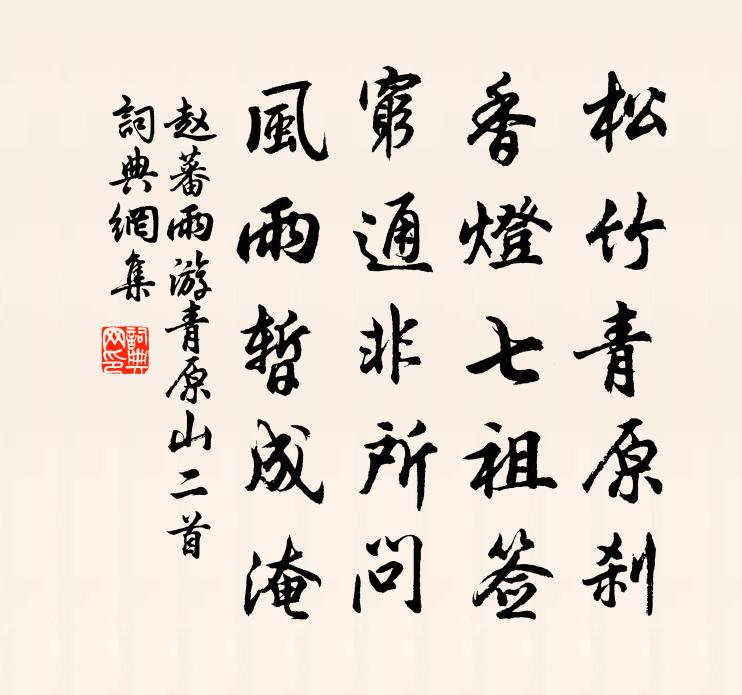 松竹青原刹
香燈七祖签
窮通非所問
風雨暫成淹
赵蕃雨游青原山二首
詞典網集
詞典网印